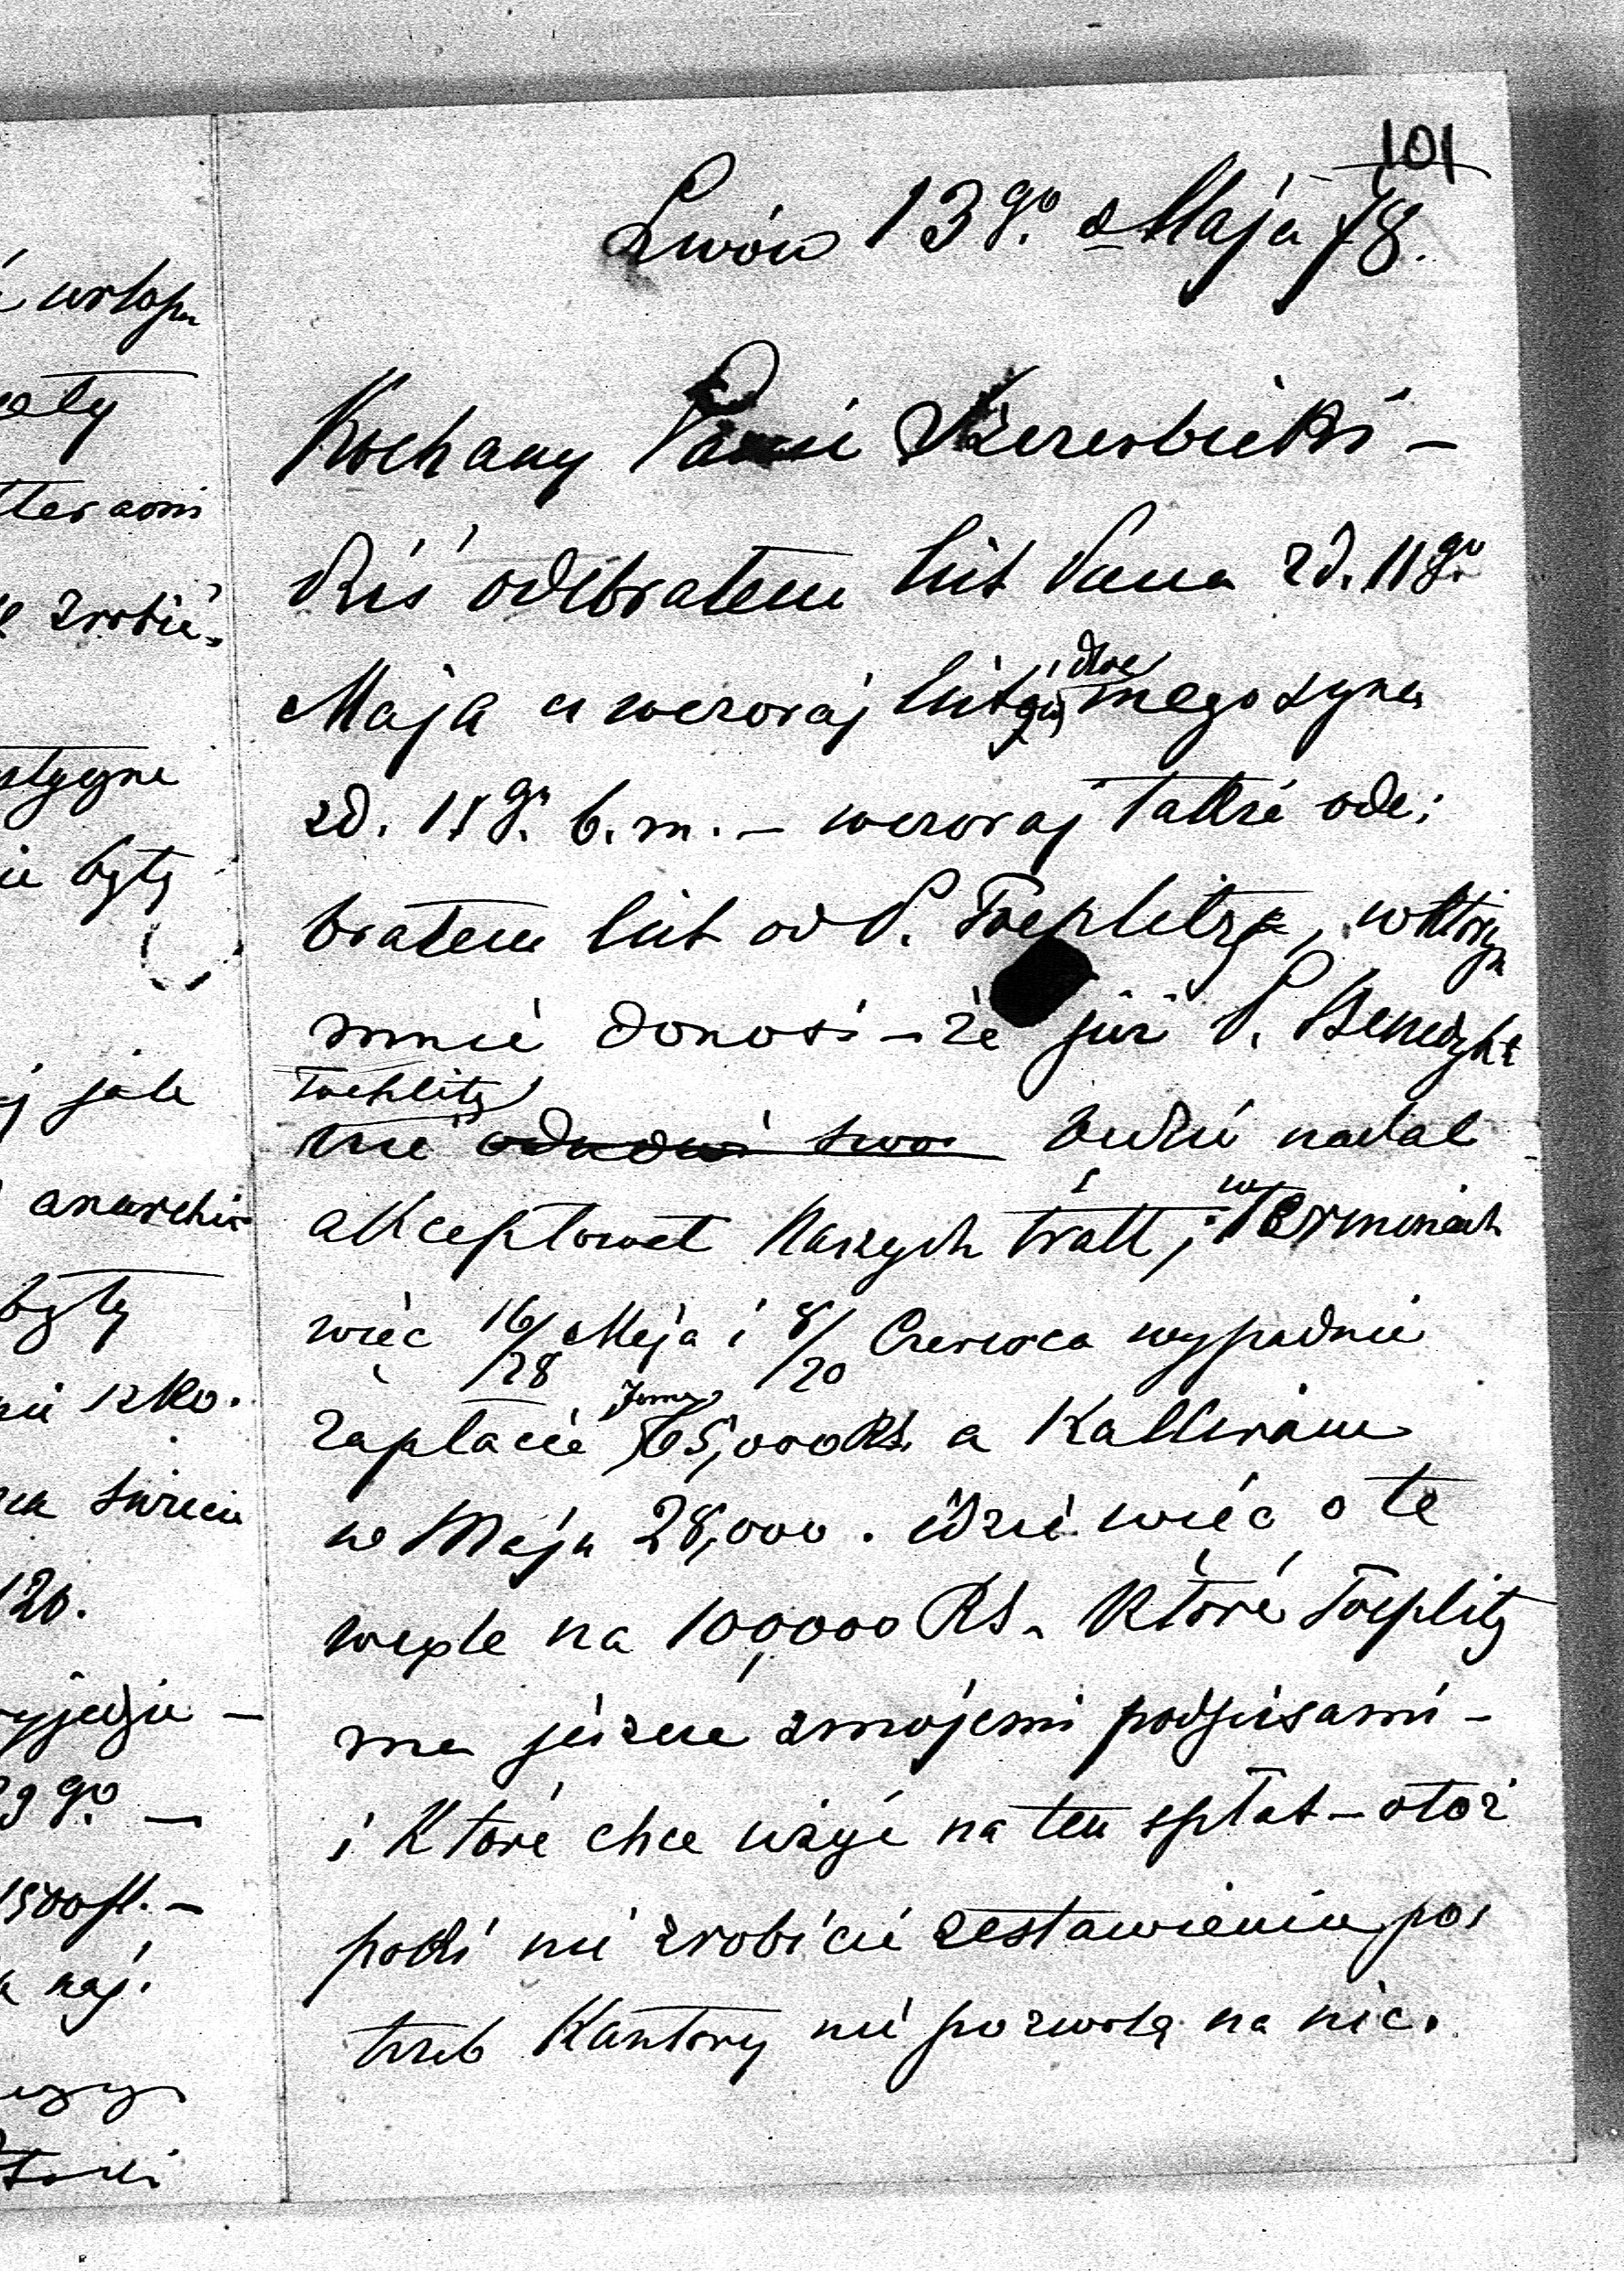 101
Lwów 13go Maja 78.
Kochany Panie Szczerbicki –
Dziś odebrałem list Pana zd. 11go
Maja a wczoraj list dla mego syna
zd. 11go b.m. – wczoraj także ode:
brałem list od P. Toeplitza, w którym
mnie donosi – że już P. Benedykt
Toeplitz
nie będzie nadal
akceptował Naszych tratt, w Terminach
więc 16/28 Maja i 8/20 Czerwca wypadnie
zapłacić Jemu 65,000 Rs. a Kallirowi
w Maju 28,000. idzie więc o te
wexle na 100,000 Rs. które Toeplitz
ma jeszcze z mojemi podpisami –
i które chce użyć na ten spłat – otóż
poki nie zrobicie zestawieniu po:
trzeb Kantory nie pozwolą na nic.
urlopu
zrobić
były
jak
anarchia
były
szko.
120.
wyjedzie –
29go –
1500 fl. –
naj.